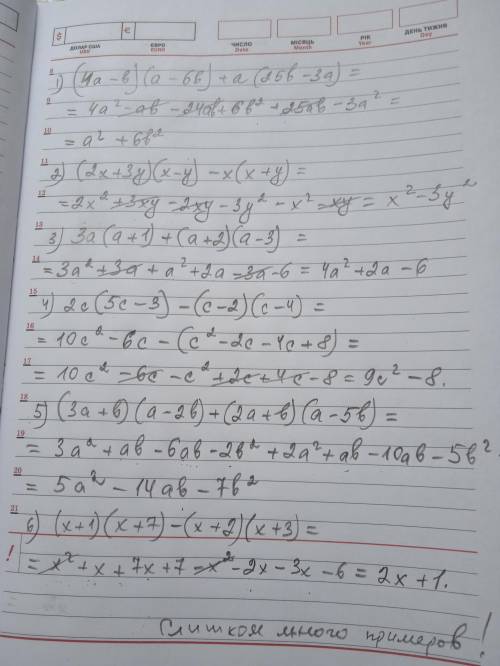 $ ДОЛАР США USD
€ ЄВРО EURO
ЧИСЛО Date
МІСЯЦЬ Month
РІК Year
ДЕНЬ ТИЖНЯ Day
8
1) (4a-b)(a-6b)+a(25b-3a)=
9
=4a²-ab-24ab+6b²+25ab-3a²=
10
=a²+6b²
11
2) (2x+3y)(x-y)-x(x+y)=
12
=2x²+3xy-2xy-3y²-x²-xy=x²-3y²
13
3) 3a(a+1)+(a+2)(a-3)=
14
=3a²+3a+a²+2a-3a-6=4a²+2a-6
15
4) 2c(5c-3)-(c-2)(c-4)=
16
=10c²-6c-(c²-2c-4c+8)=
17
=10c²-6c-c²+2c+4c-8=9c²-8.
18
5) (3a+b)(a-2b)+(2a+b)(a-5b)=
19
=3a²+ab-6ab-2b²+2a²+ab-10ab-5b²
20
=5a²-14ab-7b²
21
6) (x+1)(x+7)-(x+2)(x+3)=
!
=x²+x+7x+7-x²-2x-3x-6=2x+1.
Слишком много примеров!